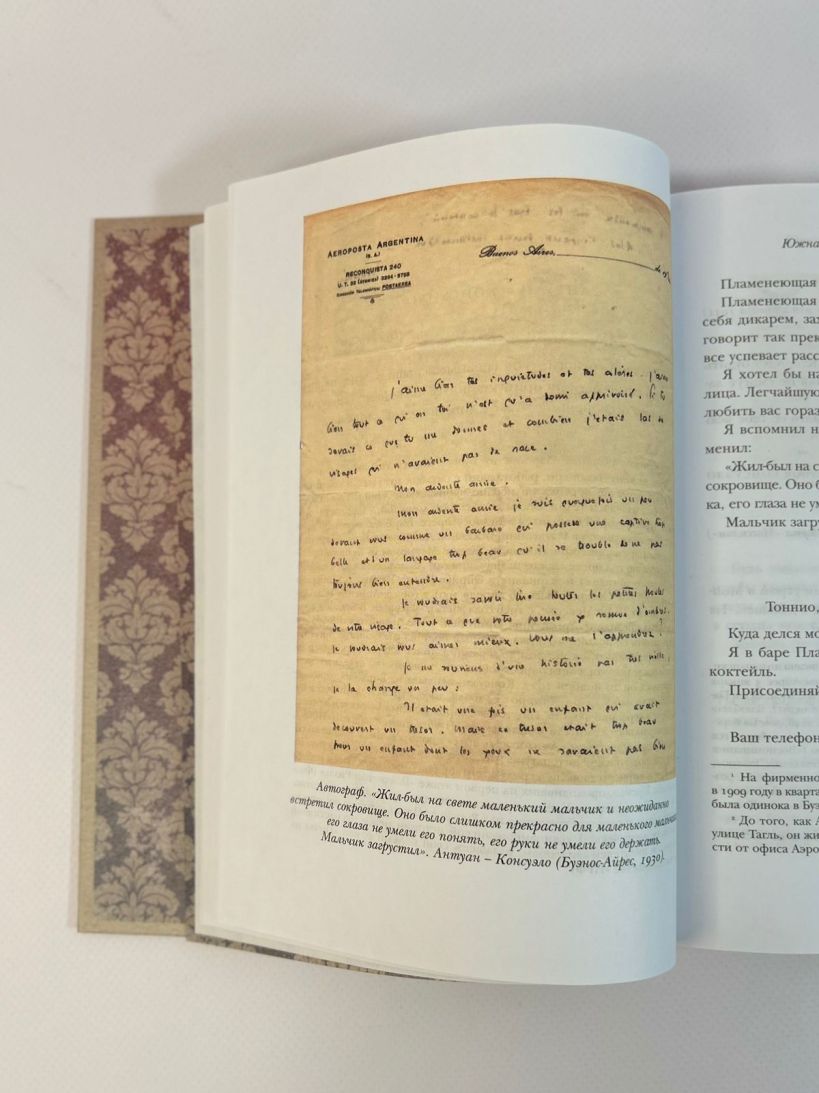 AEROPOSTA ARGENTINA
(S. A.)
RECONQUISTA 240
Buenos Aires,
j'aime bien tes inquiétudes et tes colères. j'aime
bien tout ce qui en toi n'est qu'à demi apprivoisé. Si tu
savais ce que tu me donnes et combien j'étais las de
visages qui n'avaient pas de race.
Mon ardente amie.
Mon ardente amie je suis quelquefois un peu
devant vous comme un barbare qui possède une captive trop
belle et d'un langage trop beau qu'il se trouble de ne pas
toujours bien entendre.
Je voudrais savoir lire toutes les petites houles
de votre visage. Tout ce que votre pensée y remue d'ombres.
Je voudrais vous aimer mieux. Vous me l'apprendrez?
Je me souviens d'une histoire pas très vieille,
je la change un peu:
Il était une fois un enfant qui avait
découvert un trésor. Mais ce trésor était trop beau
pour un enfant dont les yeux ne savaient pas bien
Автограф. «Жил-был на свете маленький мальчик и неожиданно
встретил сокровище. Оно было слишком прекрасно для маленького
его глаза не умели его понять, его руки не умели его держать.
Мальчик загрустил». Антуан – Консуэло (Буэнос-Айрес, 1930).
Пламенеющая
Пламенеющая
себя дикарем,
говорит так
все успевает
Я хотел бы
лица. Легчайшую
любить вас
Я вспомнил
менил:
«Жил-был на
сокровище. Оно
ка, его глаза не
Мальчик
Тоннио,
Куда делся
Я в баре
коктейль.
Ваш телефон
¹ На
в 1909 году в
была одинока в
² До того, как
улице Тагль, он
сти от офиса